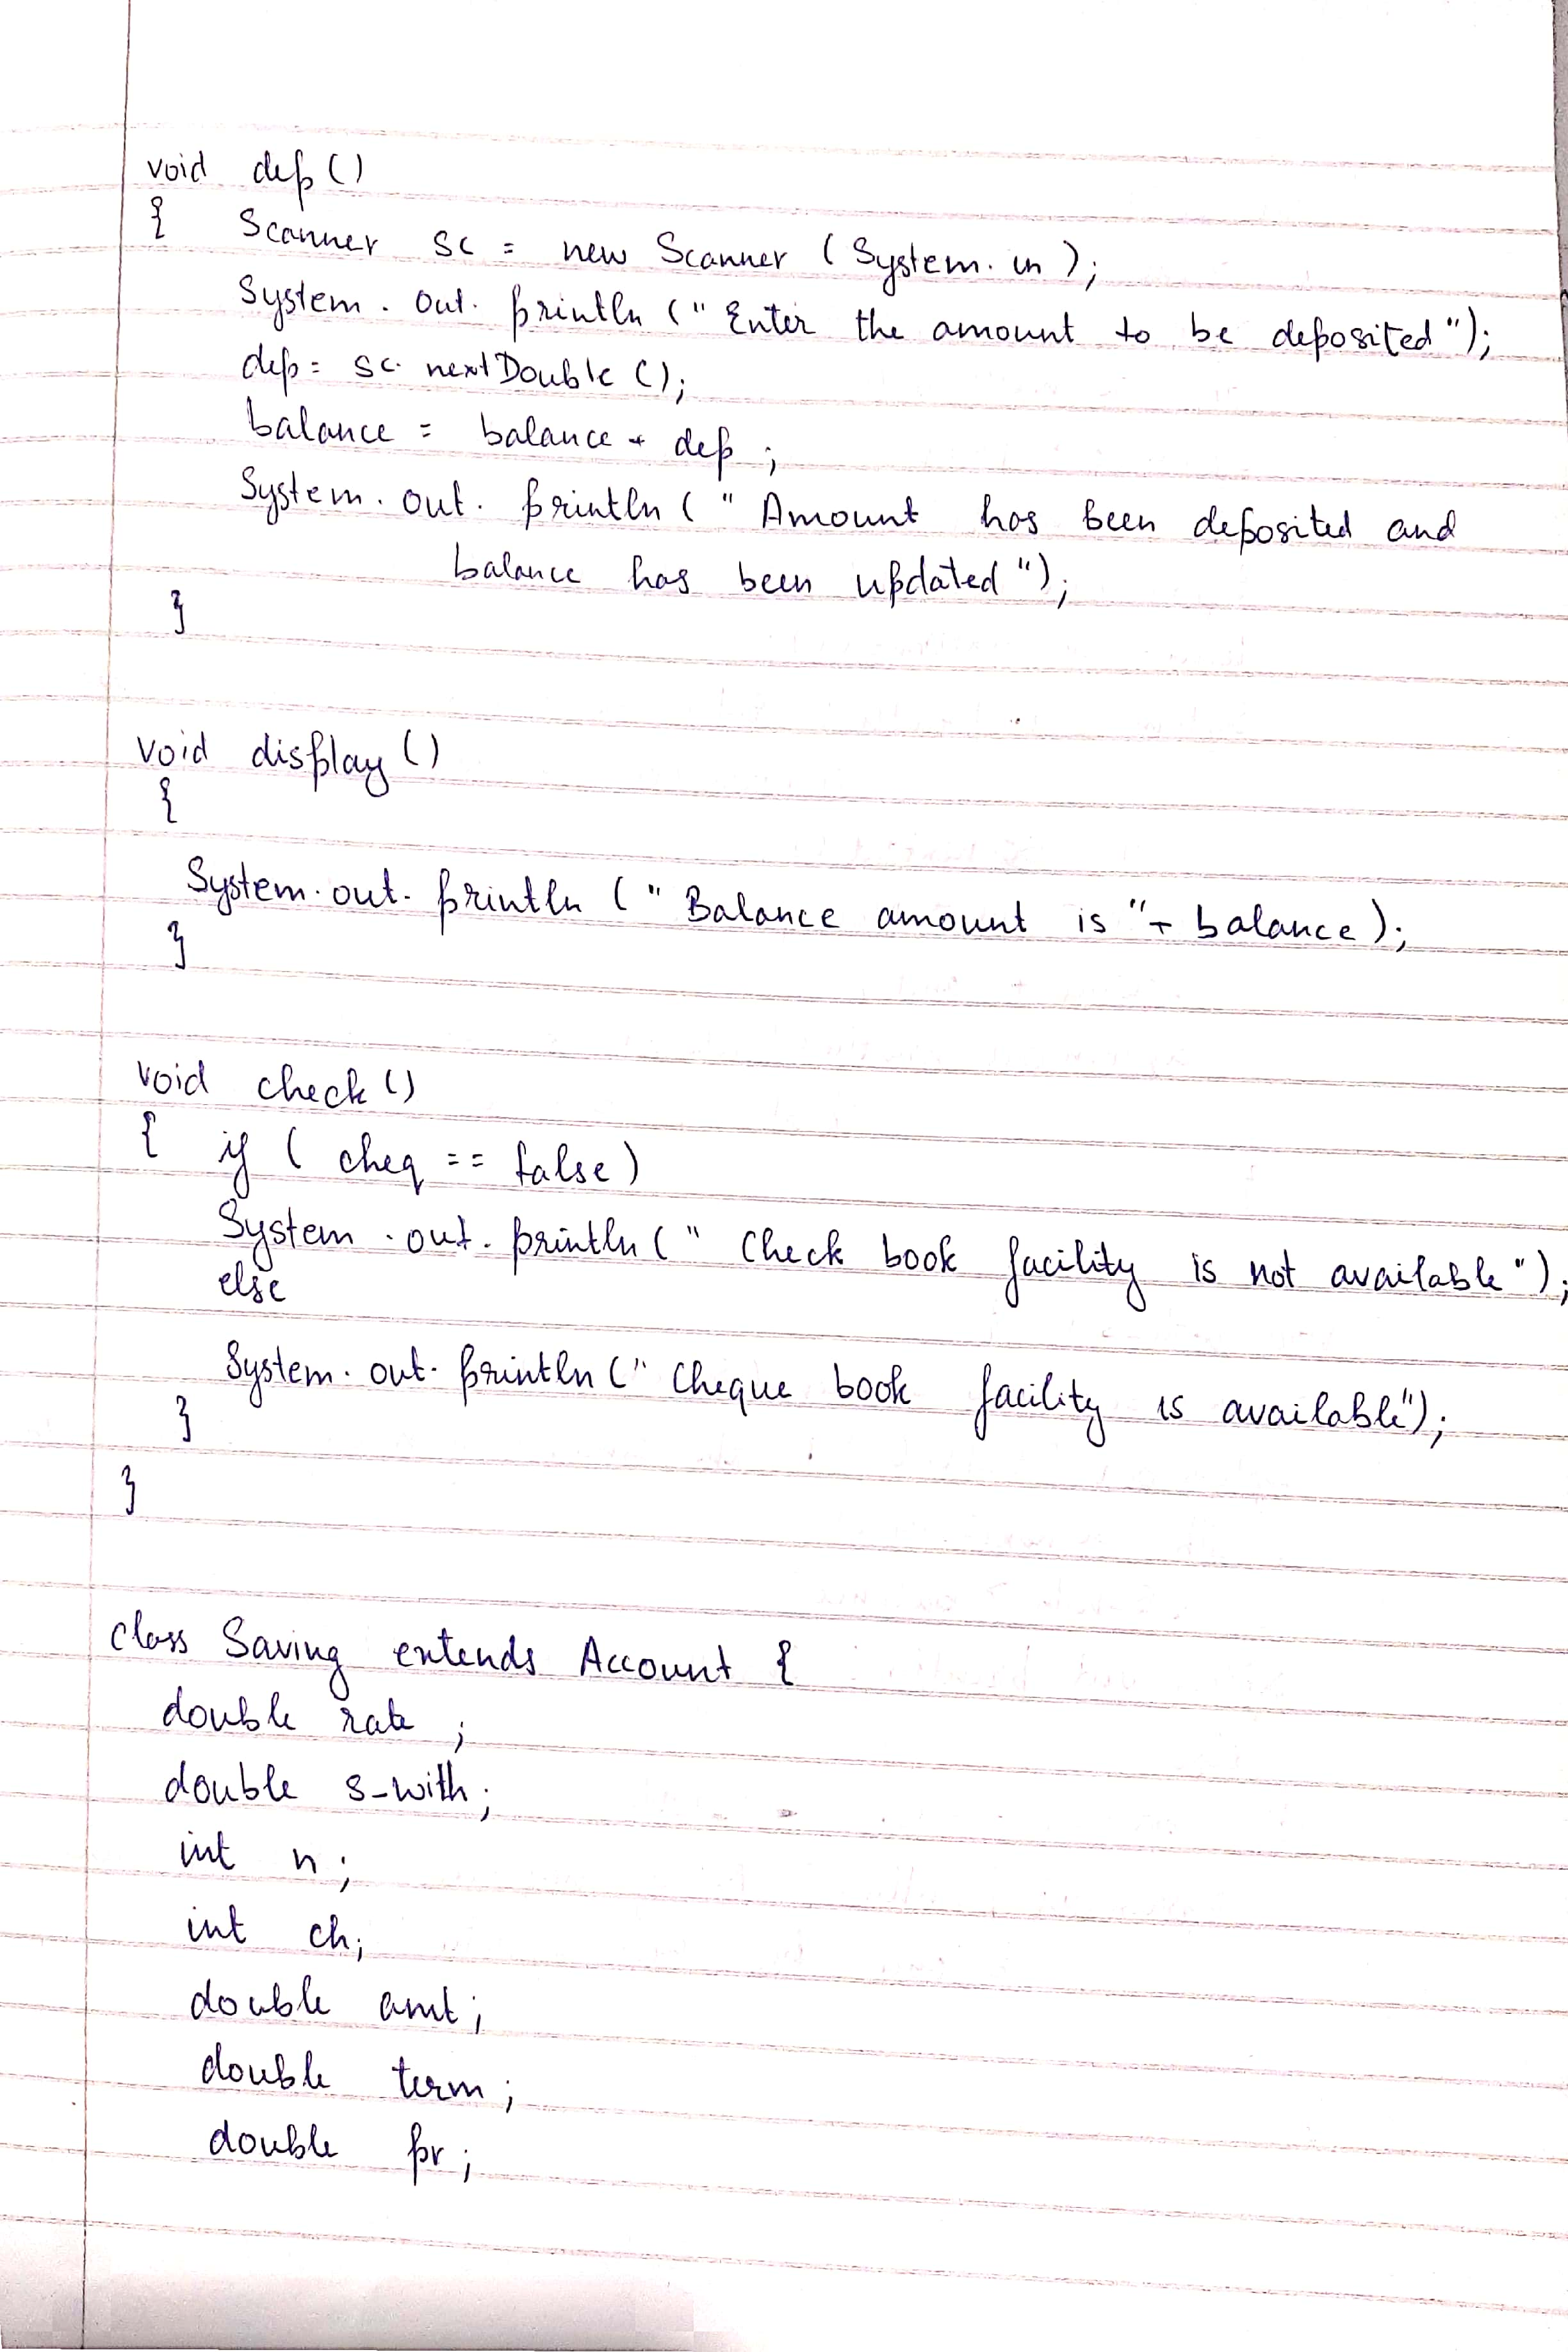 void dep()
{ Scanner sc = new Scanner (System.in);
System.out.println("Enter the amount to be deposited");
dep = sc.nextDouble();
balance = balance + dep;
System.out.println("Amount has been deposited and
balance has been updated");
}
void display()
{
System.out.println("Balance amount is"+ balance);
}
void check()
{ if (cheq == false)
System.out.println("Check book facility is not available");
else
System.out.println("Cheque book facility is available");
}
}
class Saving extends Account {
double rate;
double s_with;
int n;
int ch;
double amt;
double term;
double pr;